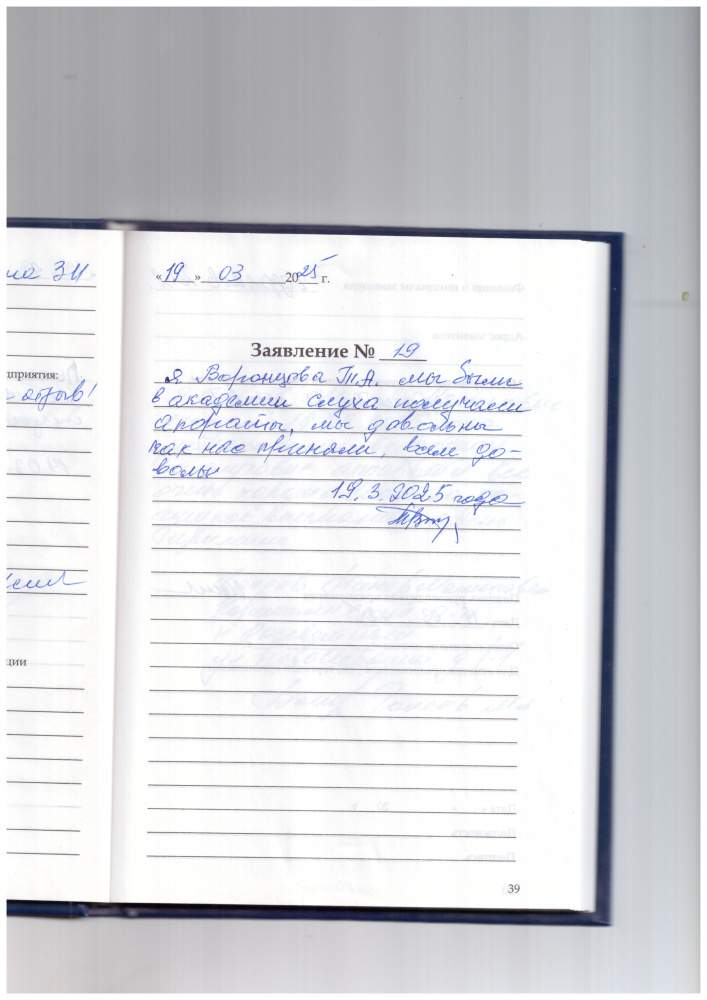 ла ЗИ
едприятия:
отзыв!
ции
«19» 03 2025 г.
Заявление № 19
я Воронцова Т.А. мы были
в академии слуха получали
апораты, мы довольны
как нас приняли, всем до-
вольн
19.3.2025 года
39